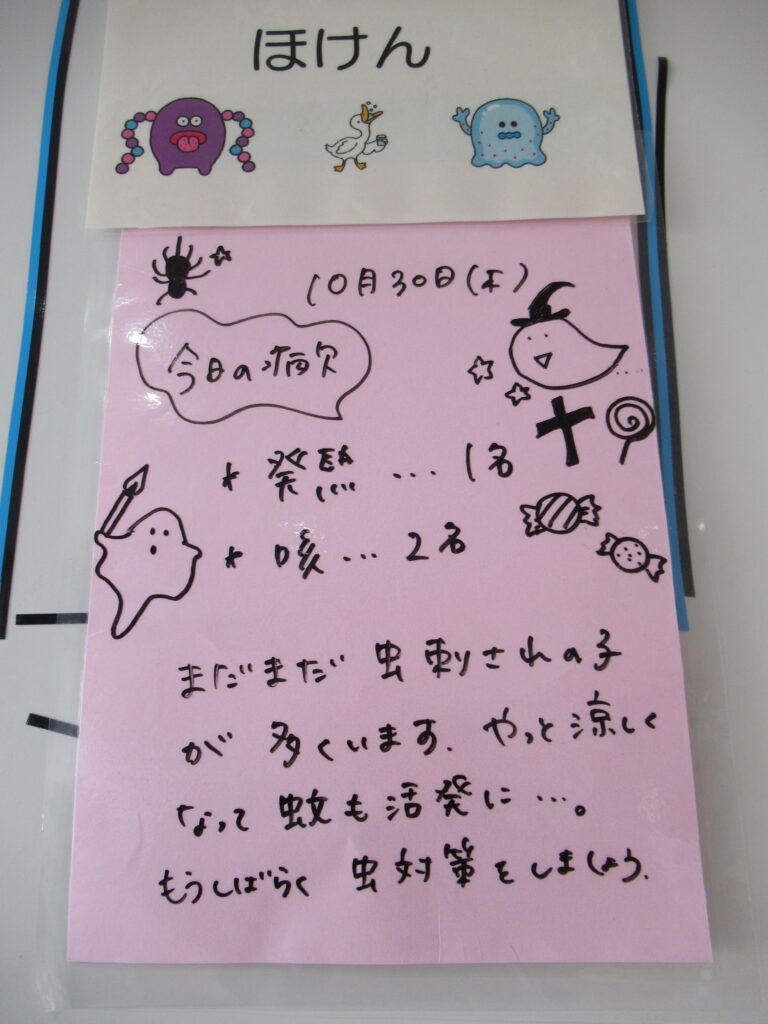 ほけん
10月30日(木)
今日の病欠
* 発熱 ... 1名
* 咳 ... 2名
まだまだ 虫刺されの子
が 多くいます. やっと涼しく
なって 蚊も活発に ...。
もうしばらく 虫対策をしましょう.